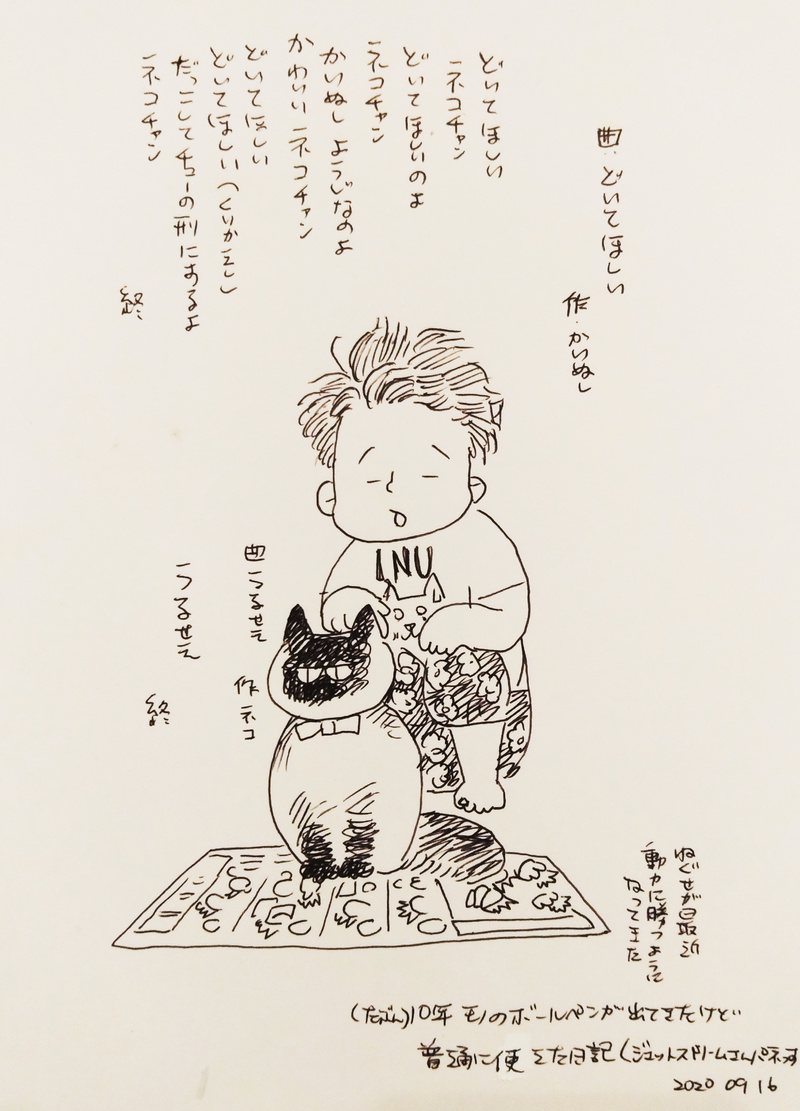 曲・どいてほしい
作・かいぬし
どいてほしい
ネコチャン
どいてほしいのよ
ネコチャン
かいぬし ようじなのよ
かわいいネコチャン
どいてほしい
どいてほしい(くりかえし
だっこしてチューの刑にあるよ
ネコチャン
終
INU
曲 うるせえ
作 ネコ
うるせえ
終
ねぐせが最近
動力に勝つように
なってきた
(たぶん)10年モノのボールペンが出てきたけど
普通に使えた日記(ジェットストリーム
2020 09 16